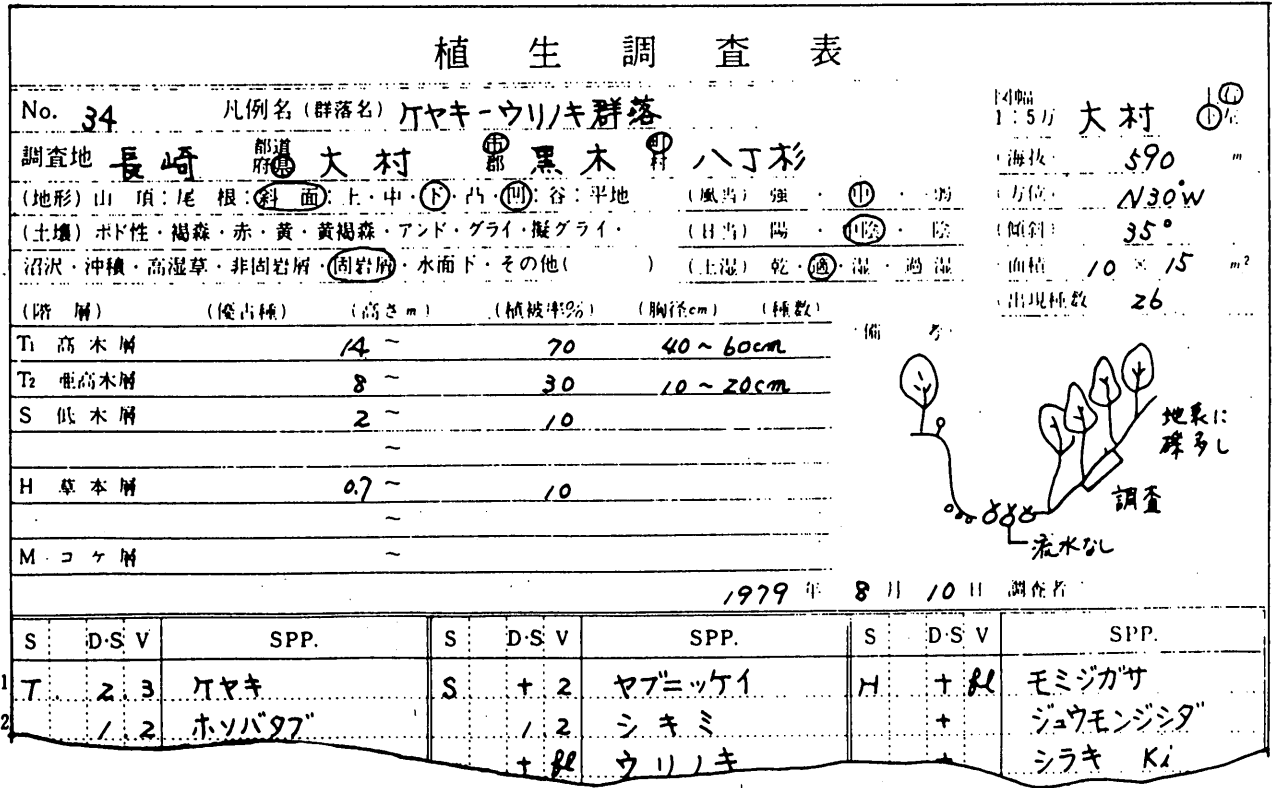 植生調査表
No. 34 凡例名(群落名) ケヤキーウリノキ群落
図幅 1:5万 大村 上 下 右 左
調査地 長崎 都道府県 大村 市郡 黒木 町村 八丁杉
(海抜) 590 m
(地形) 山頂:尾根:斜面:上・中・下・凸・凹:谷:平地 (風当) 強・中・弱
(方位) N30°W
(土壌) ポド性・褐森・赤・黄・黄褐森・アンド・グライ・擬グライ・ (日当) 陽・中陰・陰
(傾斜) 35°
沼沢・沖積・高湿草・非固岩屑・固岩屑・水面下・その他( ) (土湿) 乾・適・湿・過湿
(面積) 10 × 15 m²
(出現種数) 26
(階層) (優占種) (高さm) (植被率%) (胸径cm) (種数)
(備考)
T1 高木層 14 ~ 70 40~60cm
T2 亜高木層 8 ~ 30 10~20cm
S 低木層 2 ~ 10
~
H 草本層 0.7 ~ 10
~
M コケ層 ~
地表に
礫多し
調査
流水なし
1979 年 8 月 10 日 調査者
S D·S V SPP. S D·S V SPP. S D·S V SPP.
1 T 2.3 ケヤキ S + 2 ヤブニッケイ H + fl モミジガサ
2 1.2 ホソバタブ 1 2 シキミ + ジュウモンジシダ
+ fl ウリノキ + シラキ Ki